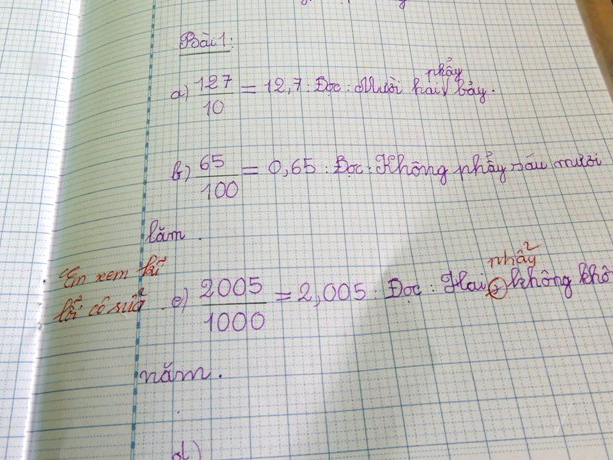 Bài 1:
phẩy
a) 127/10 = 12,7 : Đọc : Mười hai bảy.
b) 65/100 = 0,65 : Đọc : Không phẩy sáu mươi
lăm.
Em xem kĩ
lỗi cô sửa
phẩy
c) 2005/1000 = 2,005 : Đọc : Hai , không khô
năm.
d)